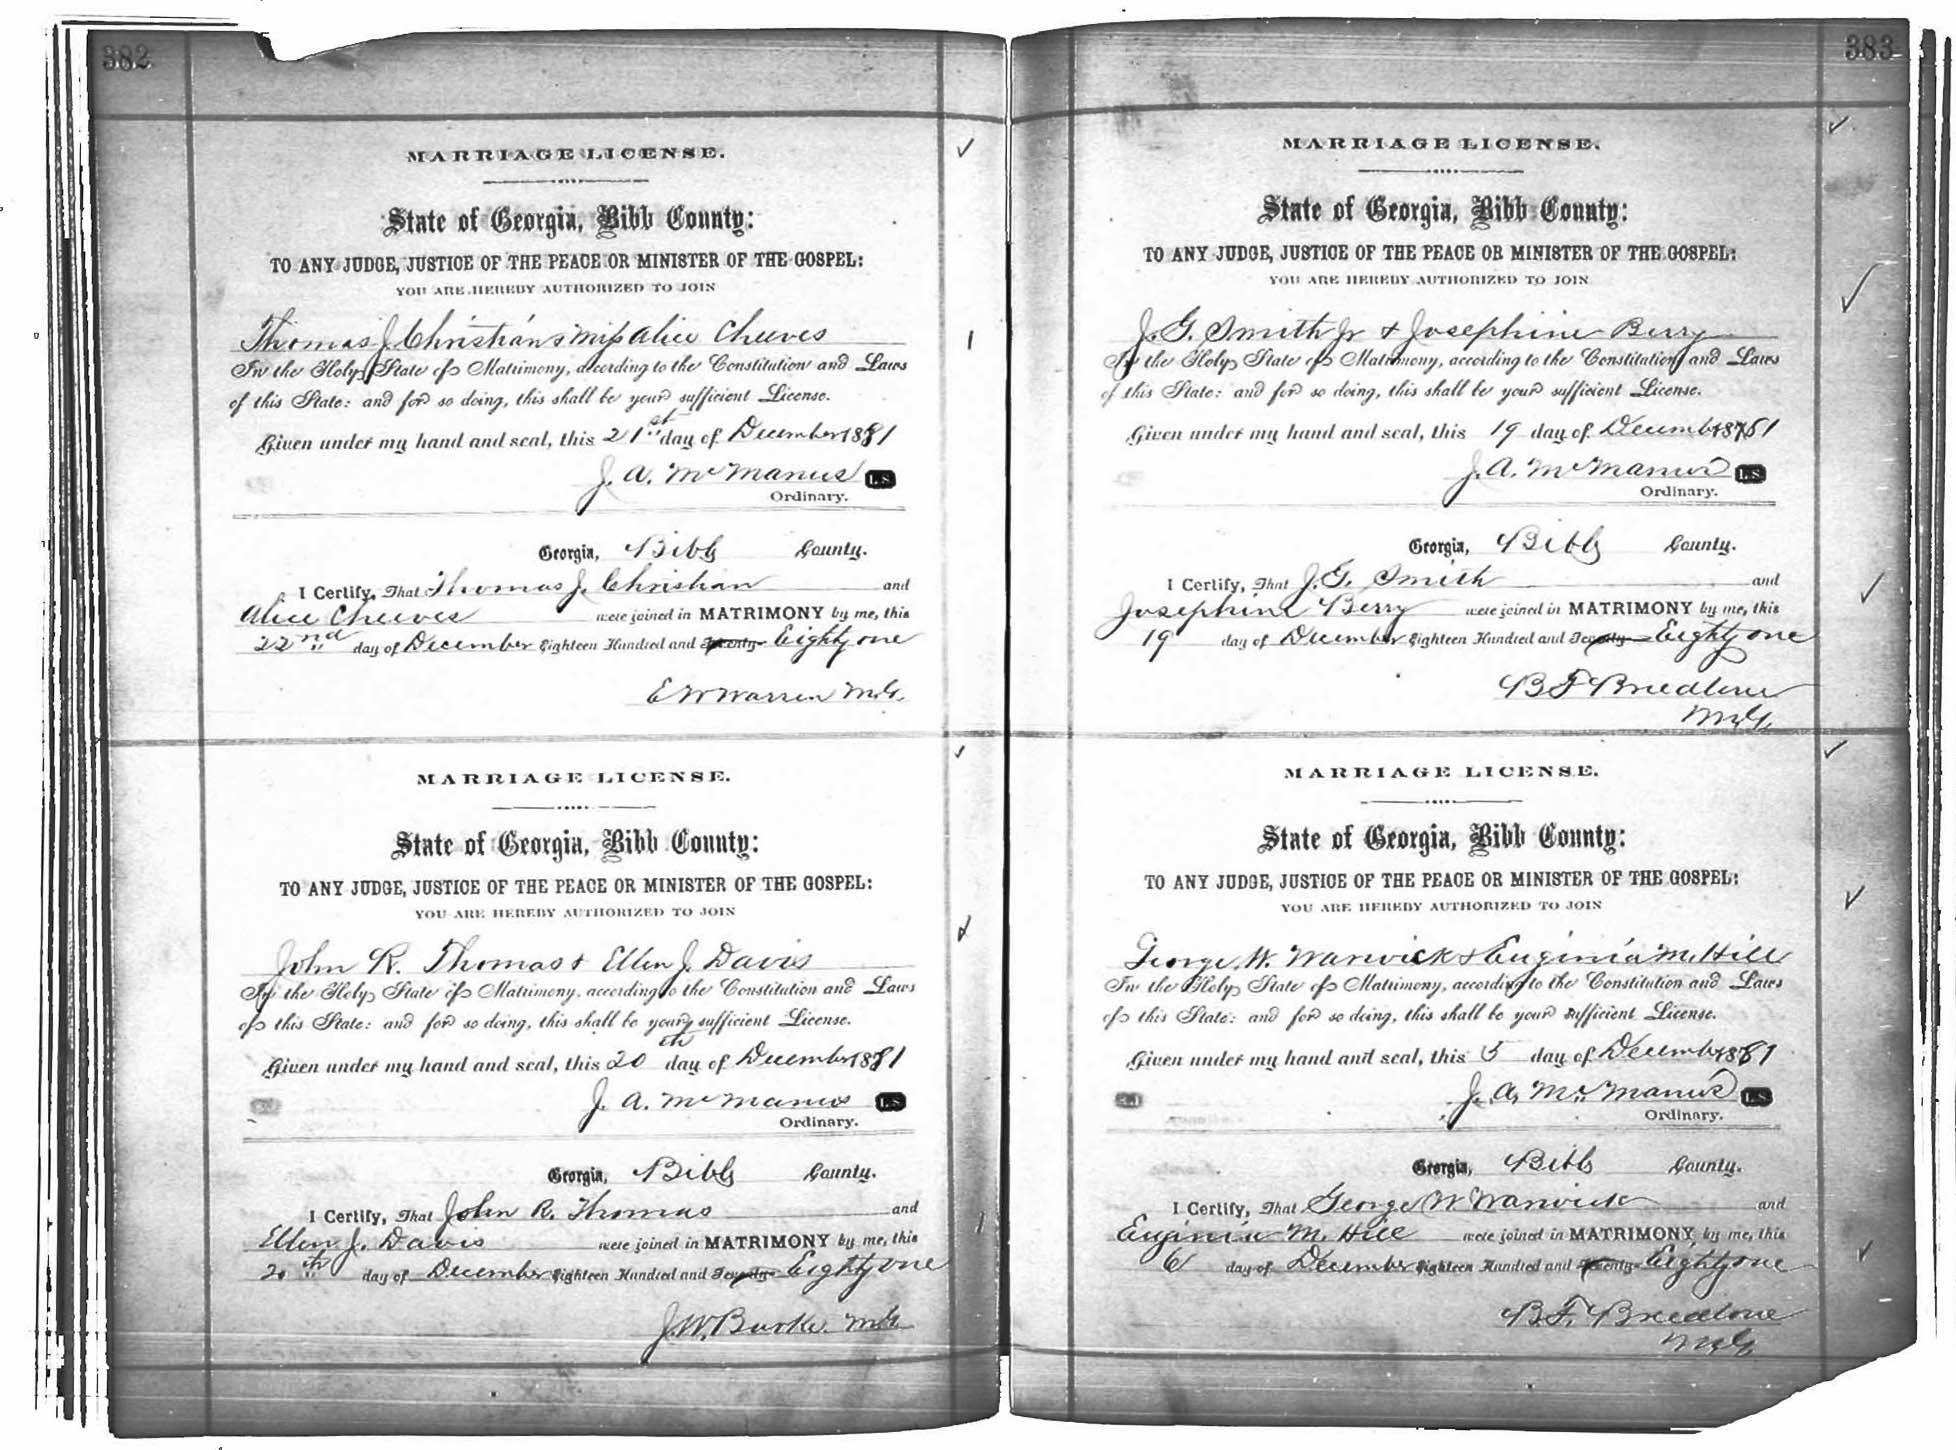 382
MARRIAGE LICENSE.
State of Georgia, Bibb County:
TO ANY JUDGE, JUSTICE OF THE PEACE OR MINISTER OF THE GOSPEL:
YOU ARE HEREBY AUTHORIZED TO JOIN
Thomas J. Christian & Miss Alice Cheeves
In the Holy State of Matrimony, according to the Constitution and Laws
of this State: and for so doing, this shall be your sufficient License.
Given under my hand and seal, this 21st day of December 1881
J. A. McManus L.S.
Ordinary.
Georgia, Bibb County.
I Certify, That Thomas J. Christian and
Alice Cheeves were joined in MATRIMONY by me, this
22nd day of December Eighteen Hundred and Seventy- Eighty one
E W Warren M.G.
MARRIAGE LICENSE.
State of Georgia, Bibb County:
TO ANY JUDGE, JUSTICE OF THE PEACE OR MINISTER OF THE GOSPEL:
YOU ARE HEREBY AUTHORIZED TO JOIN
John R. Thomas & Ellen J. Davis
In the Holy State of Matrimony, according to the Constitution and Laws
of this State: and for so doing, this shall be your sufficient License.
Given under my hand and seal, this 20th day of December 1881
J. A. McManus L.S.
Ordinary.
Georgia, Bibb County.
I Certify, That John R. Thomas and
Ellen J. Davis were joined in MATRIMONY by me, this
20th day of December Eighteen Hundred and Seventy- Eighty one
J. W. Burke M.G.
383
MARRIAGE LICENSE.
State of Georgia, Bibb County:
TO ANY JUDGE, JUSTICE OF THE PEACE OR MINISTER OF THE GOSPEL:
YOU ARE HEREBY AUTHORIZED TO JOIN
J. G. Smith Jr & Josephine Berry
In the Holy State of Matrimony, according to the Constitution and Laws
of this State: and for so doing, this shall be your sufficient License.
Given under my hand and seal, this 19 day of December 1881
J. A. McManus L.S.
Ordinary.
Georgia, Bibb County.
I Certify, That J. G. Smith and
Josephine Berry were joined in MATRIMONY by me, this
19 day of December Eighteen Hundred and Seventy- Eighty one
B F Breedlove
M.G.
MARRIAGE LICENSE.
State of Georgia, Bibb County:
TO ANY JUDGE, JUSTICE OF THE PEACE OR MINISTER OF THE GOSPEL:
YOU ARE HEREBY AUTHORIZED TO JOIN
George W. Warwick & Euginia M. Hill
In the Holy State of Matrimony, according to the Constitution and Laws
of this State: and for so doing, this shall be your sufficient License.
Given under my hand and seal, this 5 day of December 1881
J. A. McManus L.S.
Ordinary.
Georgia, Bibb County.
I Certify, That George W Warwick and
Euginia M. Hill were joined in MATRIMONY by me, this
6 day of December Eighteen Hundred and Seventy- Eighty one
B. F. Breedlove
M.G.